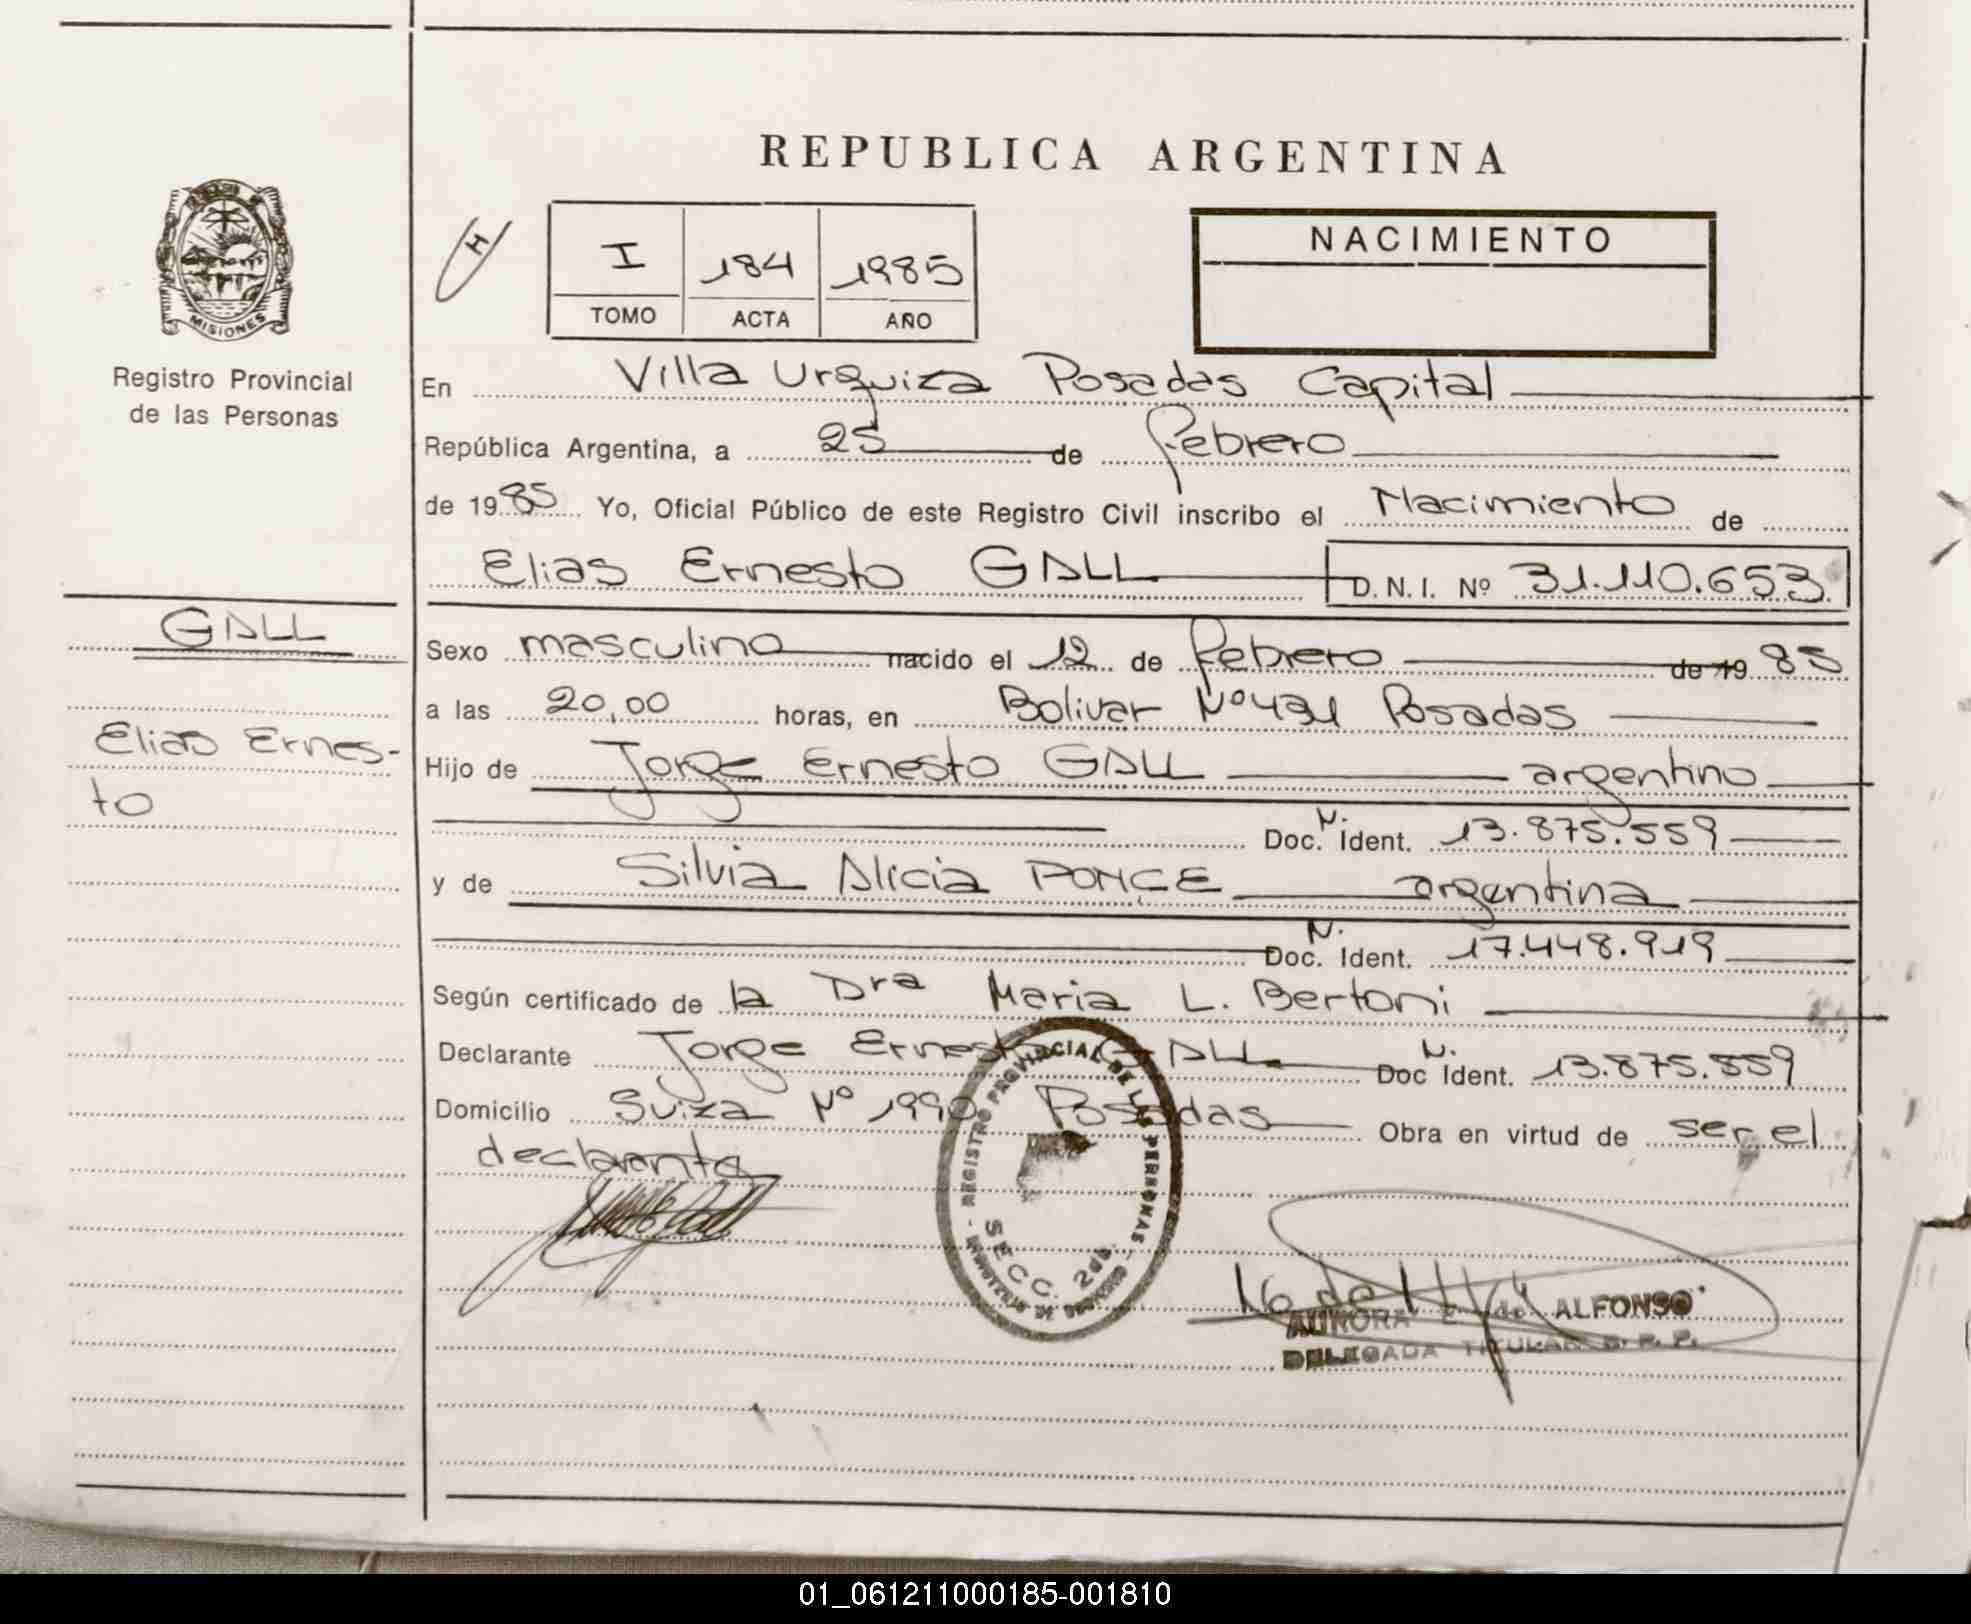 REPUBLICA ARGENTINA
MISIONES
Registro Provincial
de las Personas
H
I 184 1985
TOMO ACTA AÑO
NACIMIENTO
En Villa Urquiza Posadas Capital
República Argentina, a 25 de Febrero
de 1985 Yo, Oficial Público de este Registro Civil inscribo el Nacimiento de
Elias Ernesto GALL D. N. I. Nº 31.110.653
GALL
Elias Ernes-
to
Sexo masculino nacido el 12 de febrero de 1985
a las 20,00 horas, en Bolivar Nº 431 Posadas
Hijo de Jorge Ernesto GALL argentino
Doc. N. Ident. 13.875.559
y de Silvia Alicia PONCE argentina
Doc. N. Ident. 17.448.919
Según certificado de la Dra Maria L. Bertoni
Declarante Jorge Ernesto GALL Doc N. Ident. 13.875.559
Domicilio Suiza Nº 1990 Posadas Obra en virtud de ser el
declarante
REGISTRO PROVINCIAL DE LAS PERSONAS - MINISTERIO DE GOBIERNO -
SECC. 2da.
AURORA E. de ALFONSO
DELEGADA TITULAR R. P. P.
01_061211000185-001810